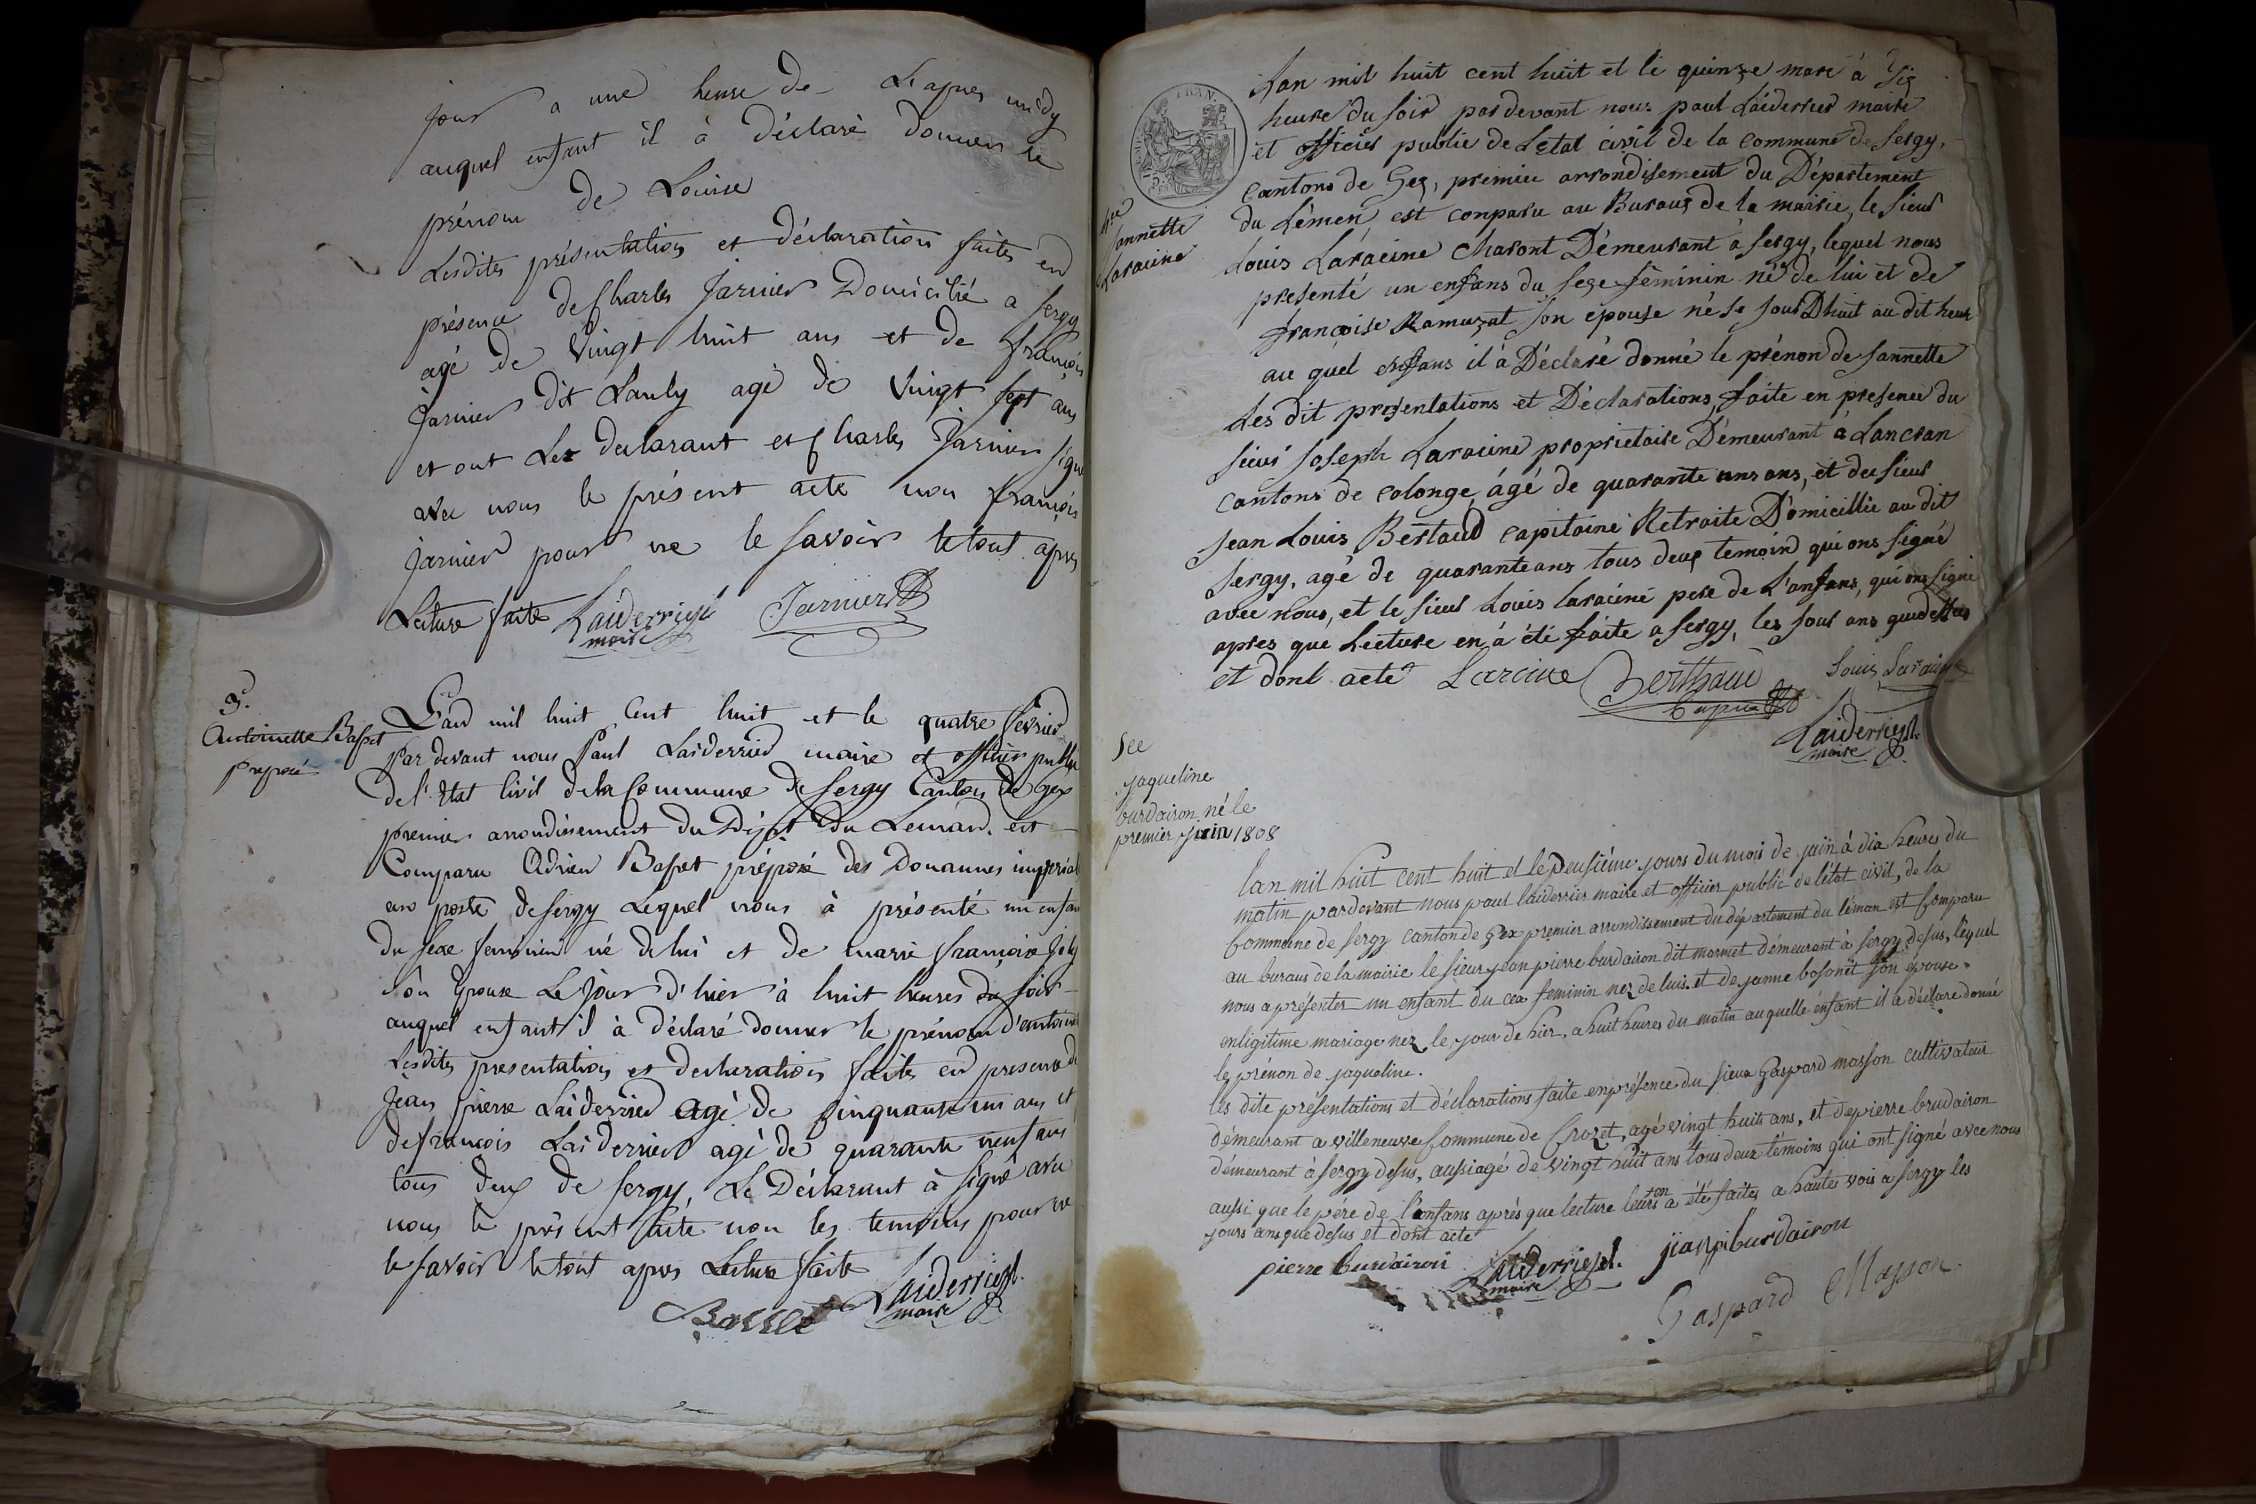 jour a une heure de L'apres midy
auquel enfant il à déclaré donner le
prénom de Louise
Lesdites présentation et déclaration faites en
présence de Charles Jarnier Domicilié a Sergy
agé de vingt huit ans et de françois
Jarnier dit Lauly agé de vingt sept ans
et ont Les declarant et Charles Jarnier signé
avec nous le présent acte non françois
Jarnier pour ne le savoir le tout apres
Lecture faite Laiderrier
maire
Jarnier
3.
Antoinette Basset
préposé
L'an mil huit Cent huit et le quatre fevrier
Par devant nous Paul Laiderrier maire et officier public
de l'Etat Civil de la Commune de Sergy Canton de Gex
premier arrondissement du Dépt. du Leman est
Comparu Adrien Basset préposé des Douannes imperial
au poste de Sergy Lequel nous à présenté un enfant
du sexe feminin né de lui et de marie françoise Joly
son Epouse Le jour d'hier à huit heures du soir
auquel enfant il à déclaré donner le prénom d'antoinette
Lesdites presentation et declaration faites en presence de
Jean pierre Laiderrier agé de cinquante un ans et
de francois Laiderrier agé de quarante neuf ans
tous deux de Sergy, Le Déclarant à signé avec
nous le présent acte non les temoins pour ne
le savoir le tout apres Lecture faite
Basset
Laiderrier
maire
FRAN.
Jannette
Laracine
Lan mil huit cent huit et le quinze mars à six
heure du soir par devant nous paul Laiderrier maire
et officier public de Letat civil de la commune de Sergy,
cantons de Gex, premier arrondisement du Département
du Lémen, est conparu au Buraux de la mairie, le sieur
Louis Laracine Charont Démeurant à Sergy, lequel nous
presenté un enfans du sexe féminin né de lui et de
françoise Ramuzat son épouse né se jour Dhuit au dit heure
au quel enfans il à Déclaré donné le prénon de Jannette
Les dit presentations et Déclarations faite en presence du
sieur Joseph Laracine proprietaire Démeurant à Lancran
cantons de Colonge, ágé de quarante uns ans, et du sieur
Jean Louis Bertaud Capitaine Retraite Domicillié au dit
Sergy, agé de quarante ans tous deux temoind qui ons signé
avec nous, et le sieur Louis laracine pere de L'anfans, qui ons signé
apres que Lecture en à été faite a Sergy, les jour ans que dessus
et dont acte Laracine Berthaud Louis Laracine
Laiderrier
maire
jaqueline
burdairon né le
premier juin 1808
lan mil huit cent huit et le Deusiéme jours du mois de juin à dix heures du
matin pardevant nous paul laiderrier maire et officier public de l'état civil, de la
Commune de Sergy canton de Gex premier arrondissement du département du léman est Comparu
au buraus de la mairie le sieur jean pierre burdairon dit marmet démeurant à Sergy desus, lequel
nous a présenter un enfant du cex feminin nez de luis et de janne bosonet son épouse
enligitime mariage nez le jour de hier, a huit heures du matin au quelle énfant il a déclare donné
le prénon de jaqueline.
les dite présentations et déclarations faite enprésence du sieur Gaspard masson cultivateur
démeurant a villeneuve Commune de Crozet, agé vingt huits ans, et depierre brudairon
démeurant à Sergy desus, aussi agé de vingt huit ans tous deux témoins qui ont signé avec nous
aussi que le pére de l'énfans aprés que lecture leurs en a été faites a hautes vois a Sergy les
jours ansque desus et dont acte
pierre burdairon Laiderrier jianpiburdairon
maire
Gaspard Masson